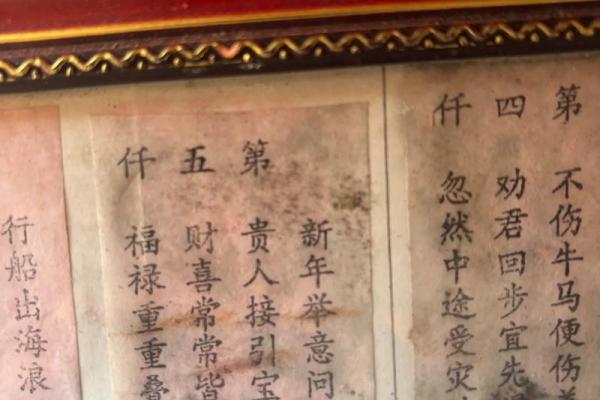 第 不伤牛马便伤
四 劝君回步宜先
仟 忽然中途受灾
新年举意问
第 贵人接引宝
五 财喜常常皆
仟 福禄重重叠
行船出海浪